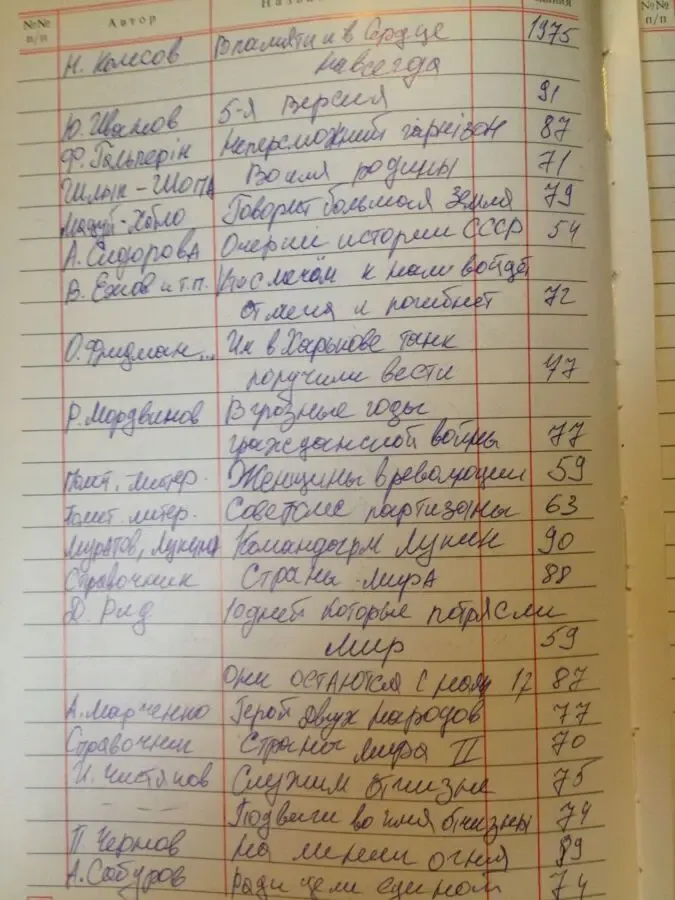 №№ п/п Автор Назва №№ п/п
Н. Колесов В памяти и в сердце 1975
навсегда
Ю. Иванов 5-я версия 91
Ф. Гальперін Непереможний гарнізон 87
Во имя родины 71
Говорит большая земля 79
А. Сидорова Очерки истории СССР 54
В. Ежов и т.п. Кто с мечом к нам войдёт
от меча и погибнет 72
О. Фридман... Им в Харькове танк
поручили вести 77
Р. Мордвинов В грозные годы
гражданской войны 77
Полит. литер. Женщины в революции 59
Полит. литер. Советские партизаны 63
Муратов, Лукина Командарм Лукин 90
Справочник Страны мира 88
Д. Рид 10 дней которые потрясли
мир 59
Они остаются с нами 17 87
А. Марченко Герой двух народов 77
Справочник Страны мира II 70
И. Чистяков Служим отчизне 75
Подвиги во имя отчизны 74
П Чернов На линии огня 89
А. Сабуров Ради цели единой 74